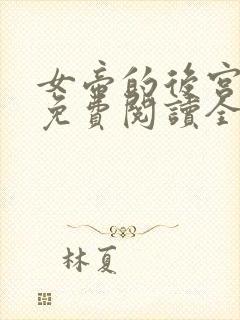 女帝的後宮
免費閱讀全
林夏